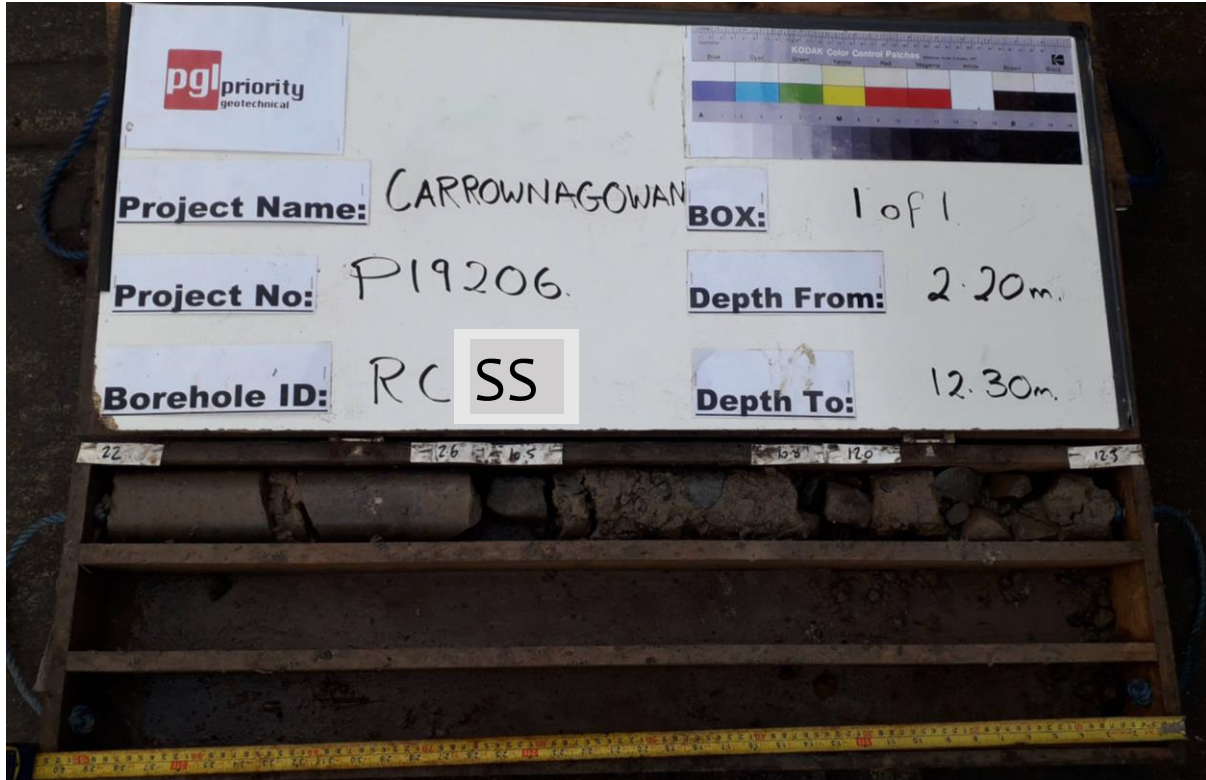 pgl priority
geotechnical
KODAK Color Control Patches
Blue Cyan Green Yellow Red Magenta White Brown Black
Project Name: CARROWNAGOWAN
BOX: 1 of 1.
Project No: P19206.
Depth From: 2.20m.
Borehole ID: RC SS
Depth To: 12.30m.
2.2
2.6
10.5
10.8
12.0